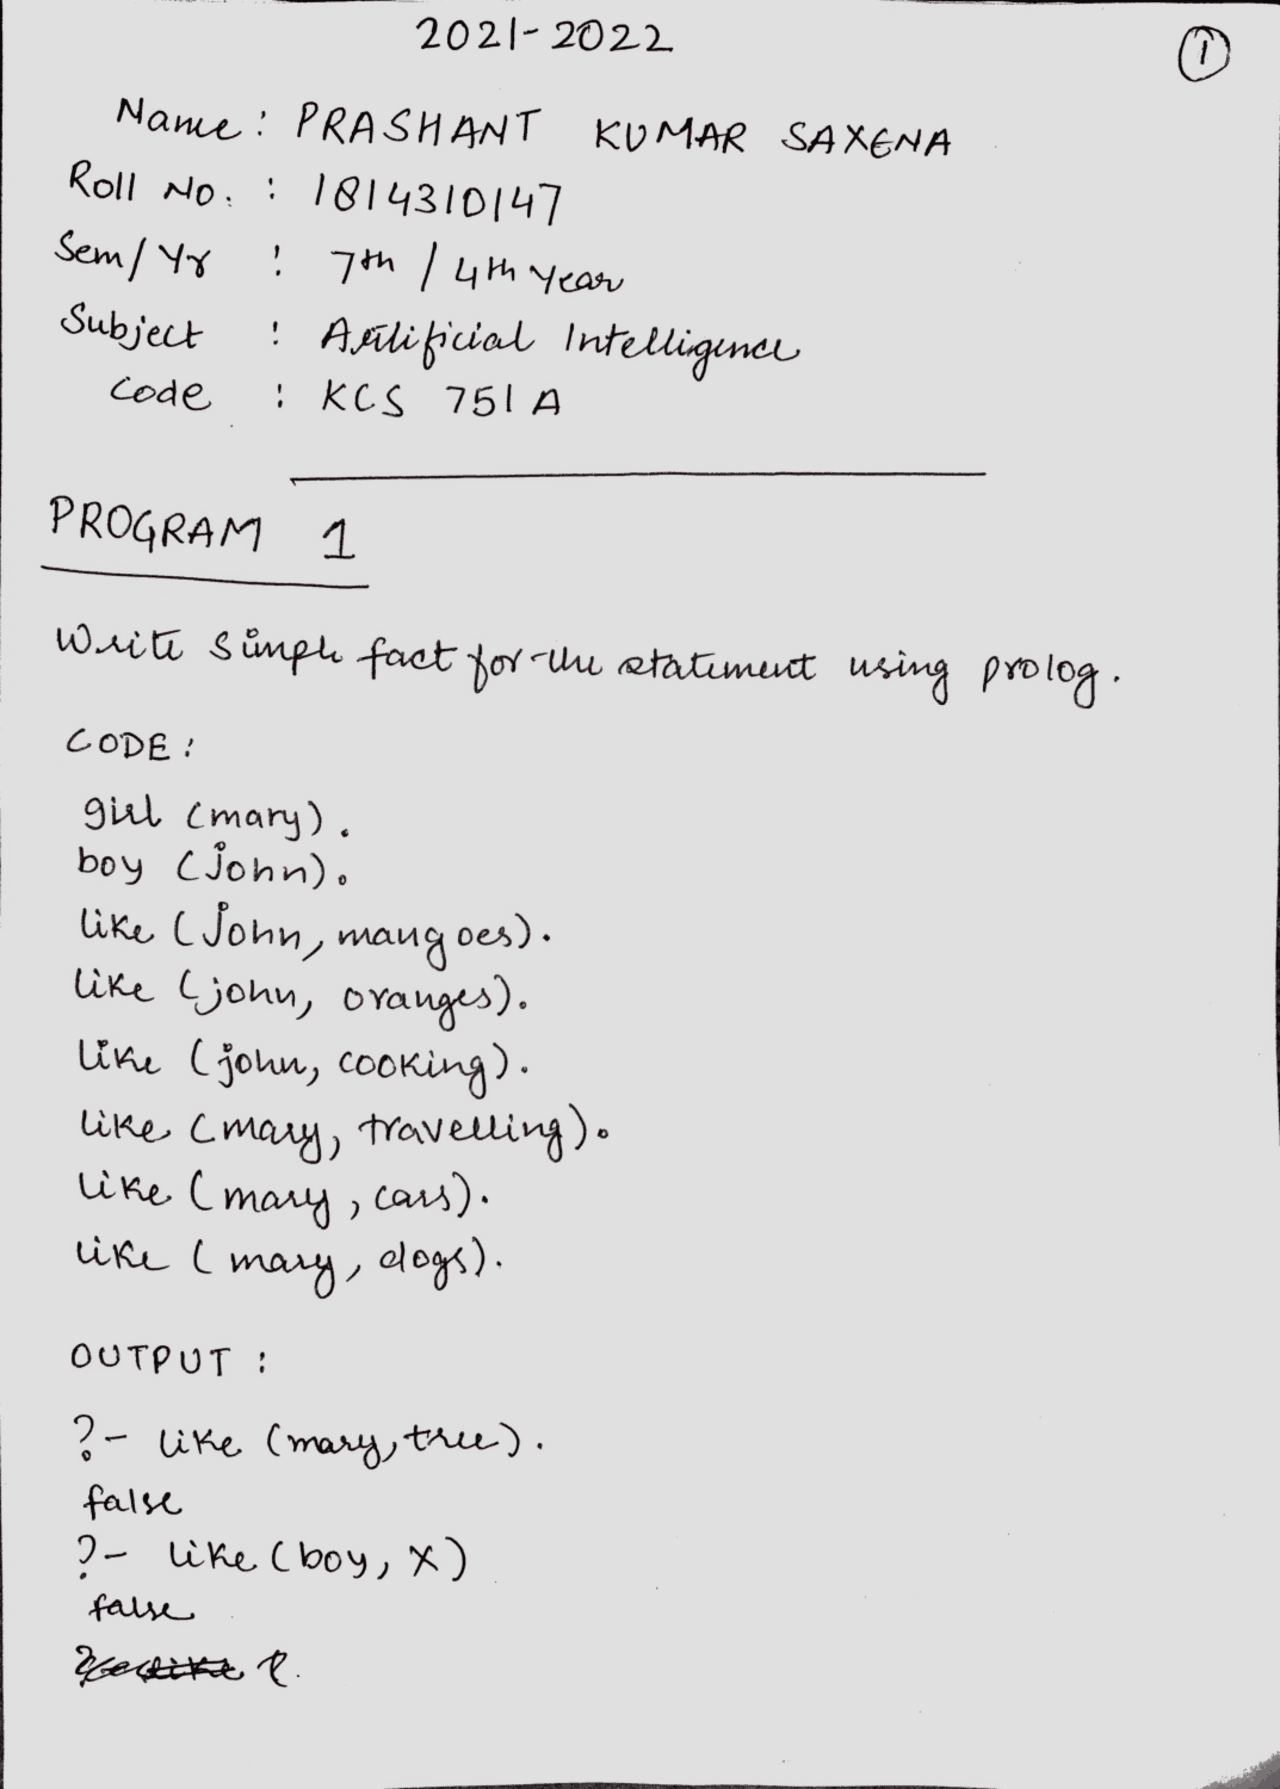 2021-2022
1
Name : PRASHANT KUMAR SAXENA
Roll No. : 1814310147
Sem/Yr : 7th / 4th Year
Subject : Artificial Intelligence
Code : KCS 751A
PROGRAM 1
Write simple fact for the statement using prolog.
CODE :
girl (mary).
boy (john).
like (john, mangoes).
like (john, oranges).
like (john, cooking).
like (mary, travelling).
like (mary, cars).
like (mary, dogs).
OUTPUT :
?- like (mary, tree).
false
?- like (boy, X)
false